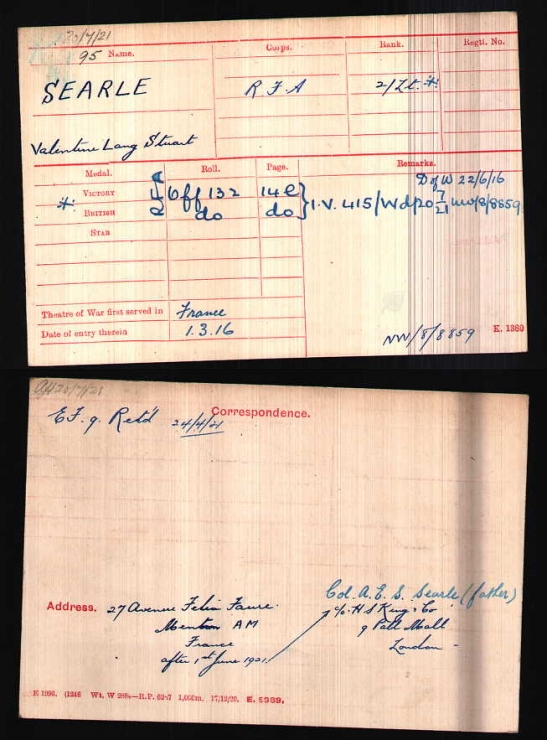 20/7/21
95 Name.
Corps.
Rank.
Regtl. No.
SEARLE
R.F.A
2/Lt.*
Valentine Lang Stuart
Medal.
Roll.
Page.
Remarks.
D of W 22/6/16
* VICTORY
Off 132
14 e
BRITISH
do
do
} I.V. 415/Wd/20 7/21 nw/8/8859
STAR
Theatre of War first served in France
Date of entry therein 1.3.16
NW/8/8859
E. 1380
20/7/21
E.F. 9. Retd 24/4/21
Correspondence.
Address. 27 Avenue Felix Faure.
Menton A M
France
after 1st June 1921.
Col. A.E.S. Searle (father)
c/o H S King & Co
9 Pall Mall
London -
Wt. W 1,000m. 17/12/20.